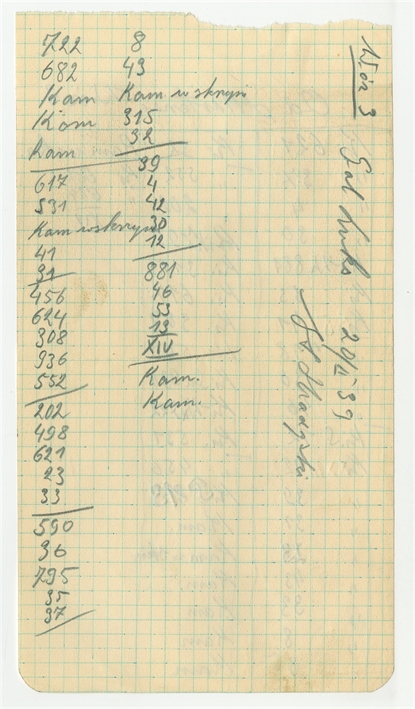 722
682
Kam
Kam
Kam
617
531
Kam w skrzyni
41
31
456
624
308
936
552
202
498
621
23
33
590
36
795
35
37
8
43
Kam w skrzyni
315
32
39
4
42
30
12
881
46
53
13
XIV
Kam.
Kam.
Wór 3
20/II 39